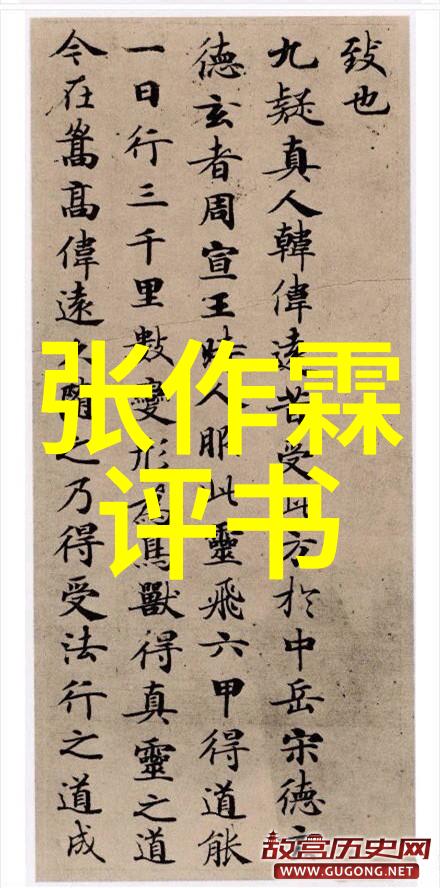 致也
九疑真人韓偉遠昔受此方於中岳宋德玄
德玄者周宣王時人服此靈飛六甲得道能
一日行三千里數變形為鳥獸得真靈之道
今在嵩高偉遠久隨之乃得受法行之道成
张作霖
评书
故宫历史网
WWW.GUGONG.NET